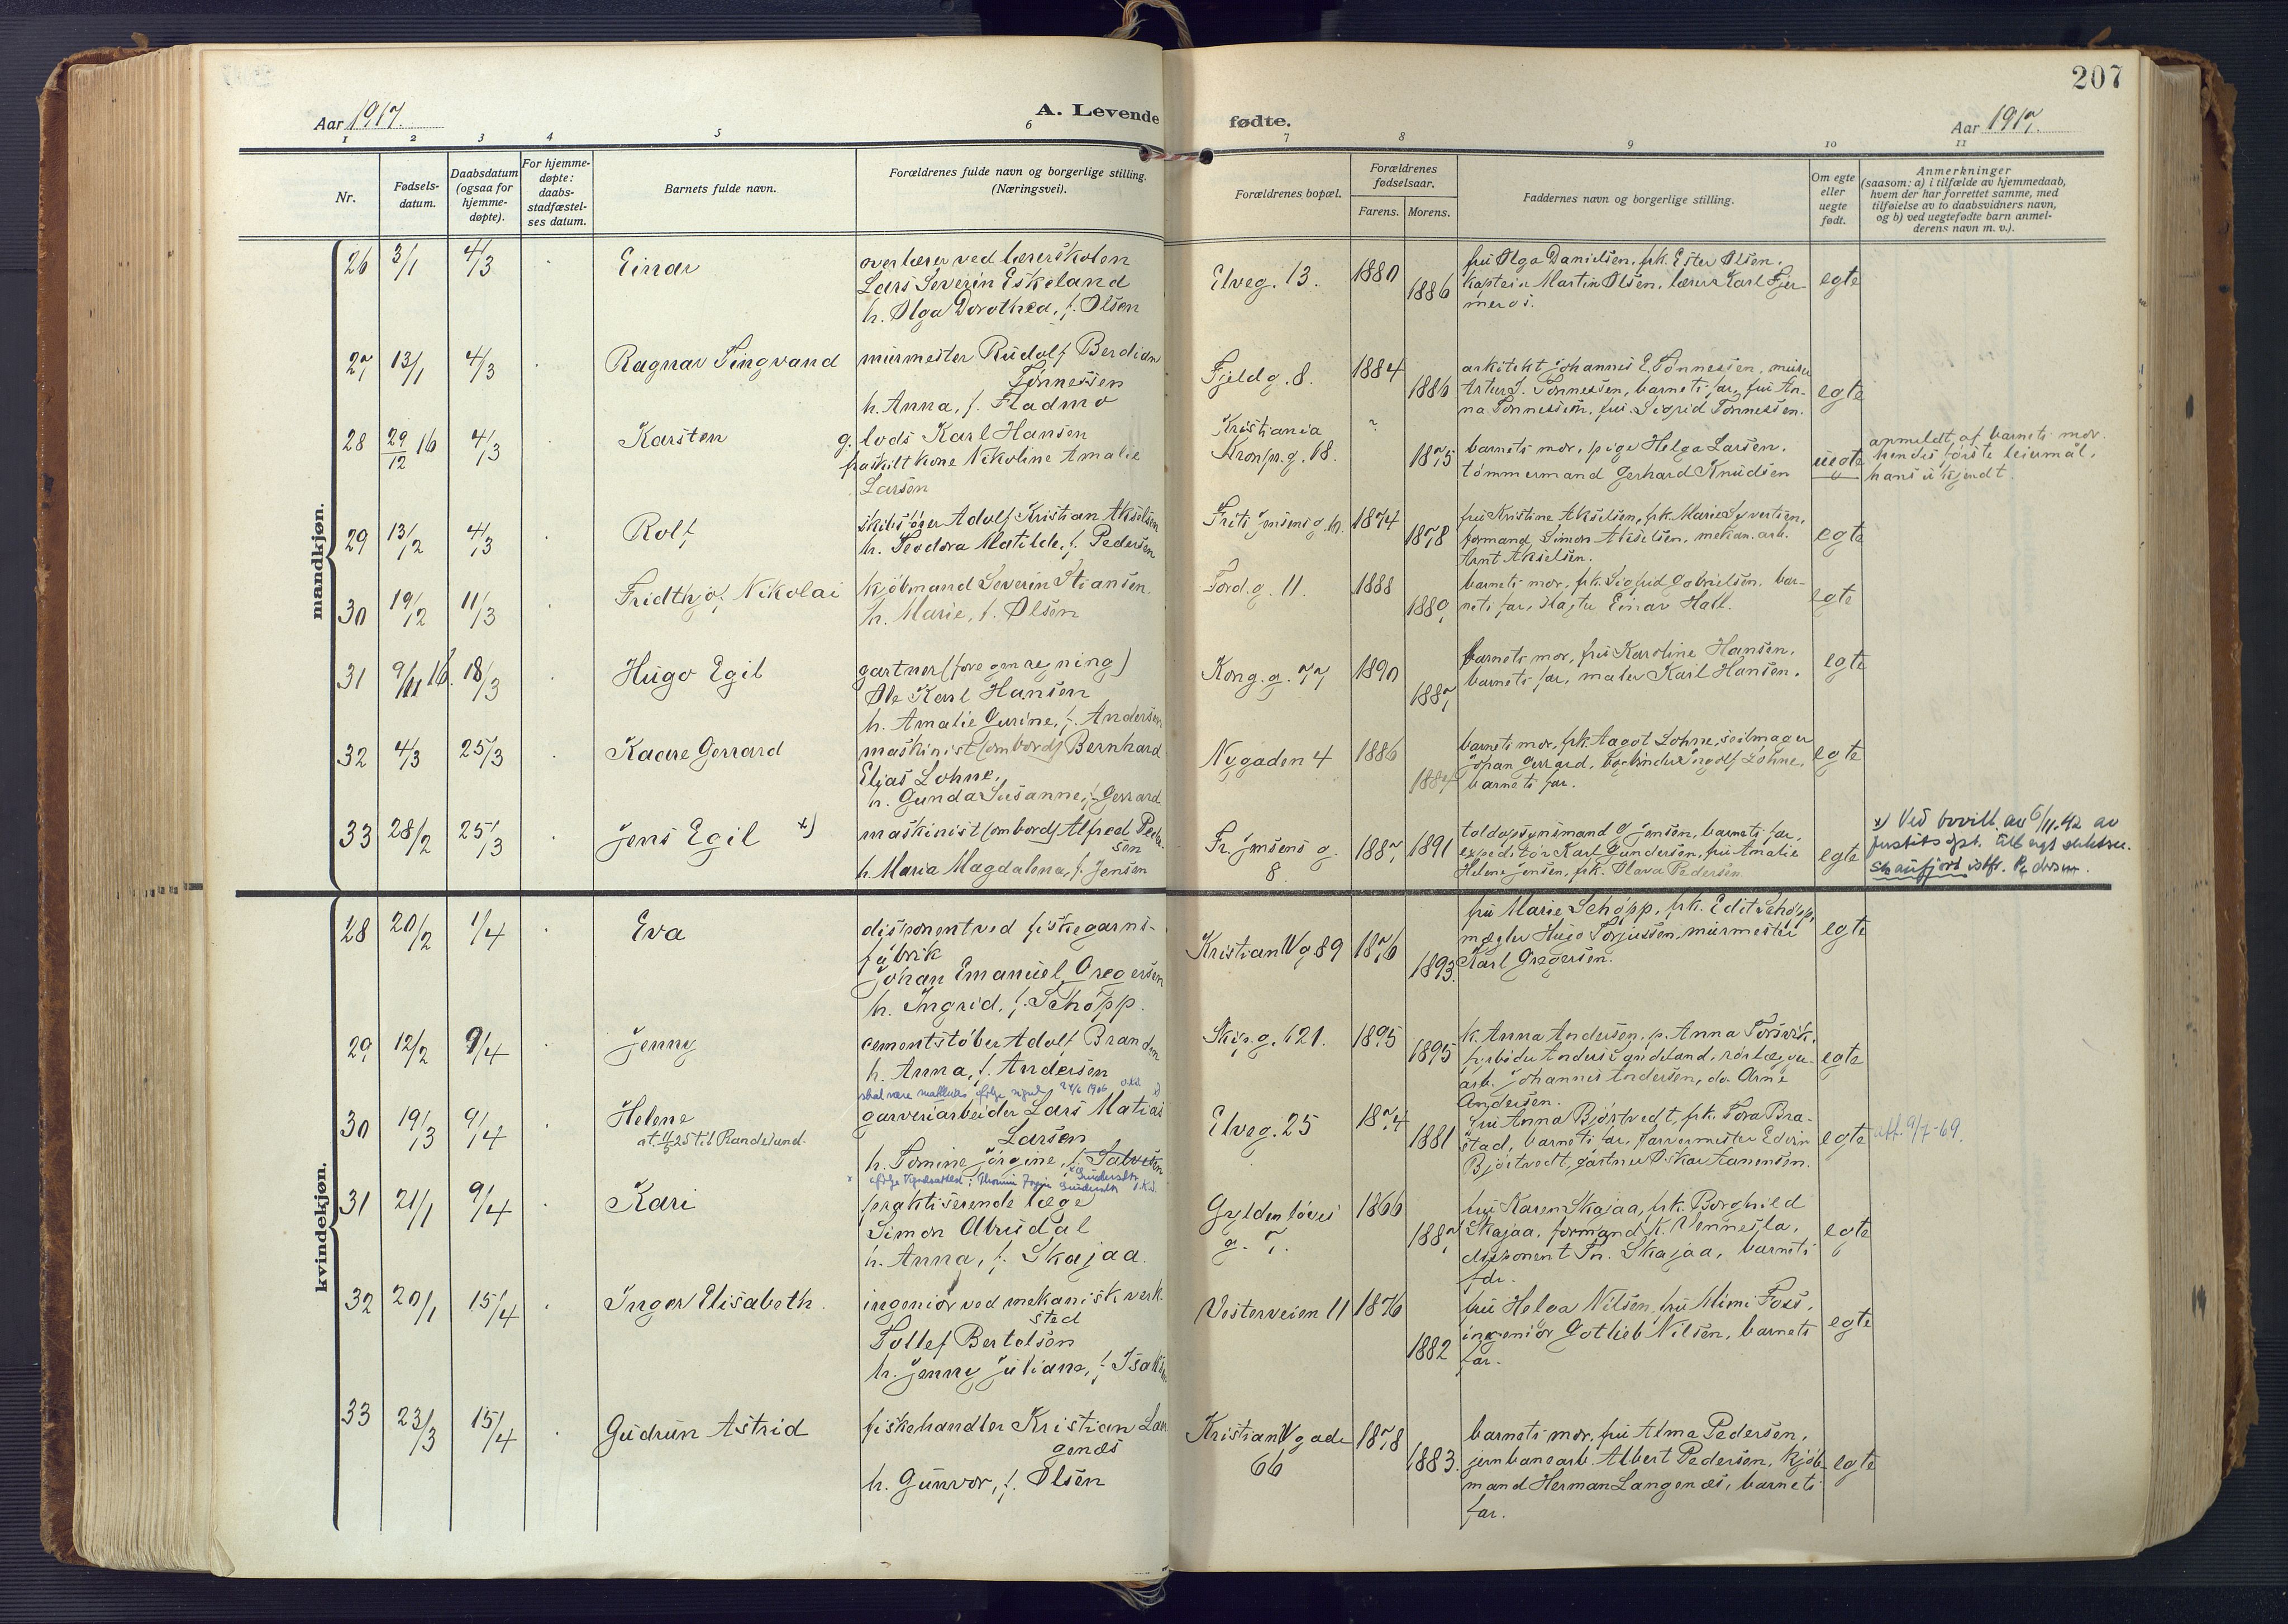 207
Aar 1917.
A. Levende
fødte.
Aar 1917.
1 2 3 4 5 6 7 8 9 10 11
Nr.
Fødsels-
datum.
Daabsdatum
(ogsaa for
hjemme-
døpte).
For hjemme-
døpte:
daabs-
stadfæstel-
ses datum.
Barnets fulde navn.
Forældrenes fulde navn og borgerlige stilling.
(Næringsvei).
Forældrenes bopæl.
Forældrenes
fødselsaar.
Farens. Morens.
Faddernes navn og borgerlige stilling.
Om egte
eller
uegte
født.
Anmerkninger
(saasom: a) i tilfælde av hjemmedaab,
hvem der har forrettet samme, med
tilføielse av to daabsvidners navn,
og b) ved uegtefødte barn anmel-
derens navn m. v.).
mandkjøn.
26 3/1 4/3
Einar
overlærer ved lærerskolen
Lars Severin Eskeland
h. Olga Dorothea, f. Olsen
Elveg. 13.
1880
1886
fru Olga Danielsen, frk. Ester Olsen,
kaptein Martin Olsen, lærer Karl Fjer-
meros.
egte
27 13/1 4/3
Ragnar Tingvand
murmester Rudolf Berdian
Tønnessen
h. Anna, f. Fladmo
Fjeldg. 8.
1884
1886
arkitekt Johannes E. Tønnessen, murer
Artur J. Tønnessen, barnets far, fru An-
na Tønnessen, fru Sigrid Tønnessen.
egte
28 29/12 16 4/3
Karsten
g. lods Karl Hansen
fraskilt kone Nikoline Amalie
Larsen
Kristiania
Kronpr.g. 68.
?
1875
barnets mor, pige Helga Larsen,
tømmermand Gerhard Knudsen
uegte
anmeldt af barnets mor
hendes første leiermål,
hans ukjendt.
29 13/2 4/3
Rolf
Adolf Kristian Akselsen
h. Teodora Matilde, f. Pedersen
1874
1878
fru Kristine Akselsen, frk. Marie Syvertsen,
formand Simon Akselsen, mekan. arb.
Arnt Akselsen.
egte
30 19/2 11/3
Fridthjof Nikolai
kjøbmand Severin Stiansen
h. Marie, f. Olsen
Tord.g. 11.
1888
1880
barnets mor, frk. Sigfrid Gabrielsen, bar-
nets far, Einar Hall.
egte
31 9/11 16. 18/3
Hugo Egil
gartner (for egen regning)
Ole Karl Hansen
h. Amalie Gurine, f. Andersen
Kong.g. 77
1890
1887
barnets mor, fru Karoline Hansen,
barnets far, maler Karl Hansen.
egte
32 4/3 25/3
Kaare Gerrard
maskinist (ombord) Bernhard
Elias Lohne,
h. Gunda Susanne, f. Gerrard
Nygaden 4
1886
1884
barnets mor, frk. Aagot Lohne, seilmager
Johan Gerrard, bogbinder Ingolf Lohne,
barnets far.
egte
33 28/2 25/3
Jens Egil x)
maskinist (ombord) Alfred Peder-
sen
h. Maria Magdalena, f. Jensen
Fr. Jensens g.
8.
1887 1891
toldopsynsmand G. Jensen, barnets far,
expeditør Karl Gundersen, fru Amalie
Helene Jensen, frk. Olava Pedersen.
egte
x) Ved bevill. av 6/11.42 av
Justitsdpt.
Skaufjord istf. Pedersen.
kvindekjøn.
28 20/2 1/4
Eva
disponent ved fiskegarns-
fabrik
Johan Emanuel Gregersen
h. Ingrid, f. Schøpp.
Kristian IV g 89
1876
1893.
fru Marie Schøpp, frk. Edit Schøpp,
mægler Hugo Torjussen, murmester
Karl Gregersen.
egte
29 12/2 9/4
Jenny
cementstøber Adolf Brandan
h. Anna, f. Andersen
Skip.g. 121.
1895
1895
k. Anna Andersen, p. Anna Torsvik,
arb. Johannes Andersen, do. Arne
Andersen.
egte
30 19/3 9/4
Helene
at. 11/5 25 til Randesund.
garveriarbeider Lars Matias
Larsen
h. Tomine Jørgine, f. Salvesen
Gundersen
Elveg. 25
1874
1881
fru Anna Bjørtvedt, frk. Tora Bra-
stad, barnets far, garvermester Edvin
Bjørtvedt, gartner Oskar Aanensen.
egte
att. 9/7-69.
31 21/1 9/4
Kari
praktiserende læge
Simon Abusdal
h. Anna, f. Skajaa.
Gyldenløves
g. 7.
1866
1887
fru Karen Skajaa, frk. Borghild
Skajaa, formand K. Vennesla,
disponent Tn. Skajaa, barnets
far.
egte
32 20/1 15/4
Inger Elisabeth.
ingeniør ved mekanisk verk-
sted
Tollef Bertelsen
h. Jenny Juliane, f. Isaksen
Vesterveien 11
1876
1882
fru Helga Nilsen, fru Mimi Foss,
ingeniør Gotlieb Nilsen, barnets
far.
egte
33 23/3 15/4
Gudrun Astrid
fiskehandler Kristian Lan
genæs
h. Gunvor, f. Olsen
Kristian IV gade
66
1878
1883.
barnets mor, fru Alma Pedersen,
jernbanearb. Albert Pedersen, kjøb-
mand Herman Langenæs, barnets
far.
egte